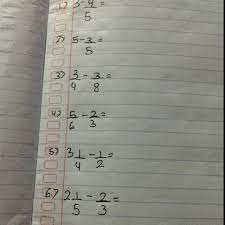 1) 3-4/5=
2) 5-3/5=
3) 3/4-3/8=
4) 5/6-2/3=
5) 3 1/4-1/2=
6) 2 1/5-2/3=